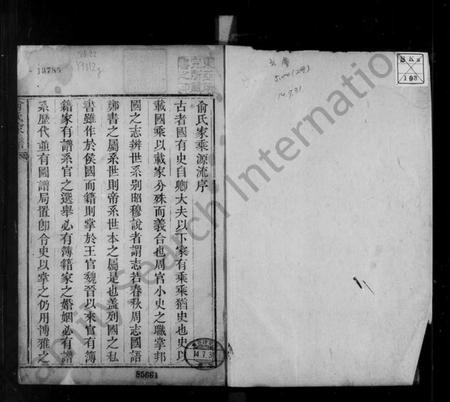 俞氏家乘源流序
古者國有史自卿大夫以下家有乘乘猶史也史以
載國乘以載家分殊而義合也周官小史之職掌邦
國之志辨世系別昭穆說者謂志若春秋周志國語
鄭書之屬系世則帝系世本之屬是也蓋列國之私
書雖作於侯國而籍則掌於王官魏晉以來官有簿
籍家有譜系官之選舉必有簿籍家之婚姻必有譜
系歷代並有國譜局置郎令史以掌之仍用博雅之
俞氏家譜
13785
85661
14.7.31
14.7.31
193